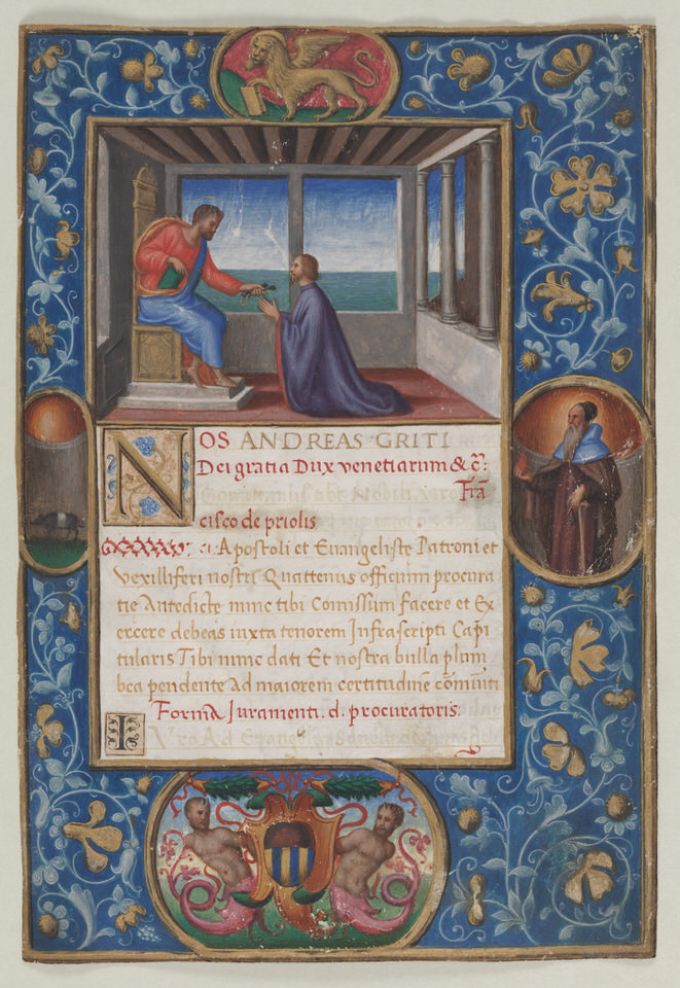 NOS ANDREAS GRITI
Dei gratia Dux venetiarum & c̃:
Frã
cisco de priolis
Apostoli et Euangeliste Patroni et
Vexilliferi nostri Quattenus officium procura
tie Antedicte nunc tibi Comissum facere et Ex
ercere debeas iuxta tenorem Infrascripti Capi
tularis Tibi nunc dati Et nostra bulla plum
bea pendente Ad maiorem certitudinẽ cõmuniti
Forma Iuramenti. d. procuratoris:
IVro Ad Euangelia